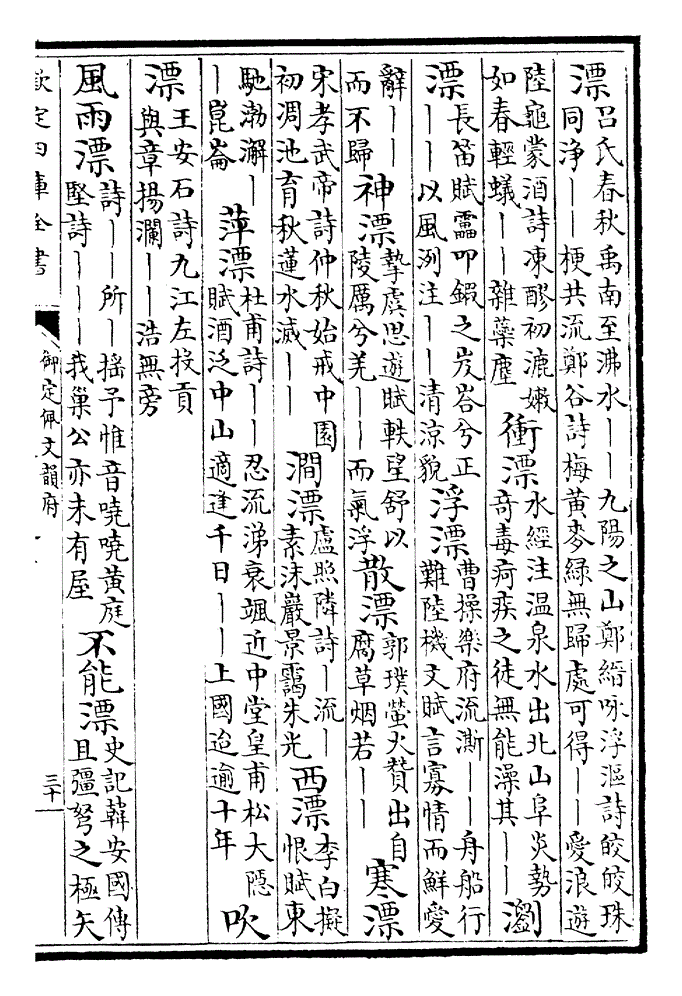 漂呂氏春秋禹南至沸水丨丨九陽之山鄭縉咏浮漚詩皎皎珠
同淨丨丨梗共流鄭谷詩梅黃麥綠無歸處可得丨丨愛浪遊
陸龜蒙酒詩凍醪初漉嫩
如春輕蟻丨丨雜蘂塵
衝漂水經注溫泉水出北山阜炎勢
奇毒疴疾之徒無能澡其丨丨
瀏漂長笛賦靁叩鍜之岌峇兮正
丨丨以風洌注丨丨清涼貌
浮漂曹操樂府流澌丨丨舟船行
難陸機文賦言寡情而鮮愛
辭丨丨
而不歸
神漂摯虞思遊賦軼望舒以
陵厲兮羌丨丨而氣浮
散漂郭璞螢火贊出自
腐草烟若丨丨
寒漂
宋孝武帝詩仲秋始戒中園
初凋池育秋蓮水滅丨丨
澗漂盧照隣詩丨流丨
素沫巖景靄朱光
西漂李白擬
恨賦東
馳渤澥丨
丨崑崙
萍漂杜甫詩丨丨忍流涕衰颯近中堂皇甫松大隱
賦酒泛中山適逢千日丨丨上國迨逾十年
吹漂王安石詩九江左投貢
與章揚瀾丨丨浩無旁
風雨漂詩丨丨所丨搖予惟音嘵嘵黃庭
堅詩丨丨丨我巢公亦未有屋
不能漂史記韓安國傳
且彊弩之極矢
欽定四庫全書
御定佩文韻府
三十